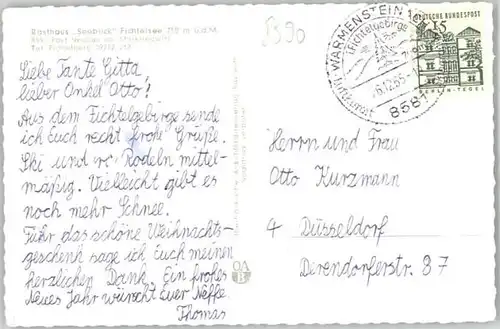 Rasthaus „Seeblick" Fichtelsee
Liebe Tante Gitta,
lieber Onkel Otto!
Aus dem Fichtelgebirge sende
ich Euch recht frohe Grüße.
Ski und Rodeln mittel-
mäßig. Vielleicht gibt es
noch mehr Schnee.
Führ das schöne Weihnachts-
geschenk sage ich Euch meinen
herzlichen Dank. Ein frohes
Neues Jahr wünscht Euer Neffe
Thomas
B90
WARMENSTEINACH
Fichtelgebirge
Luftkurort
8581
DEUTSCHE BUNDESPOST
15
BERLIN-TEGEL
Herrn und Frau
Otto Kurzmann
4 Düsseldorf
Derendorferstr. 87